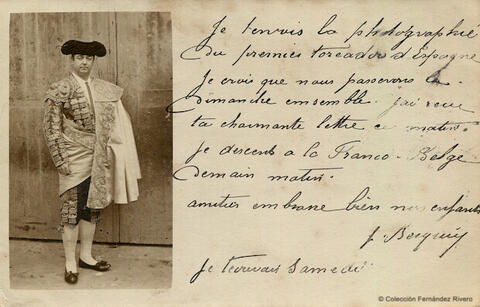 Je t'envois la photographie
du premier toréador d'Espagne
Je crois que nous passerons le
Dimanche ensemble. j'ai reçu
ta charmante lettre ce matin.
Je descends a la Franco-Belge
demain matin.
amities embrasse bien nos enfants
Je t'ecrirais Samedi
© Colección Fernández Rivero